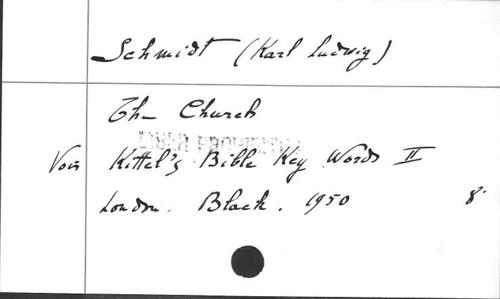 Schmidt (Karl Ludwig)
Th— Church
Voir Kittel's Bible Key Words II
London. Black. 1950 8°